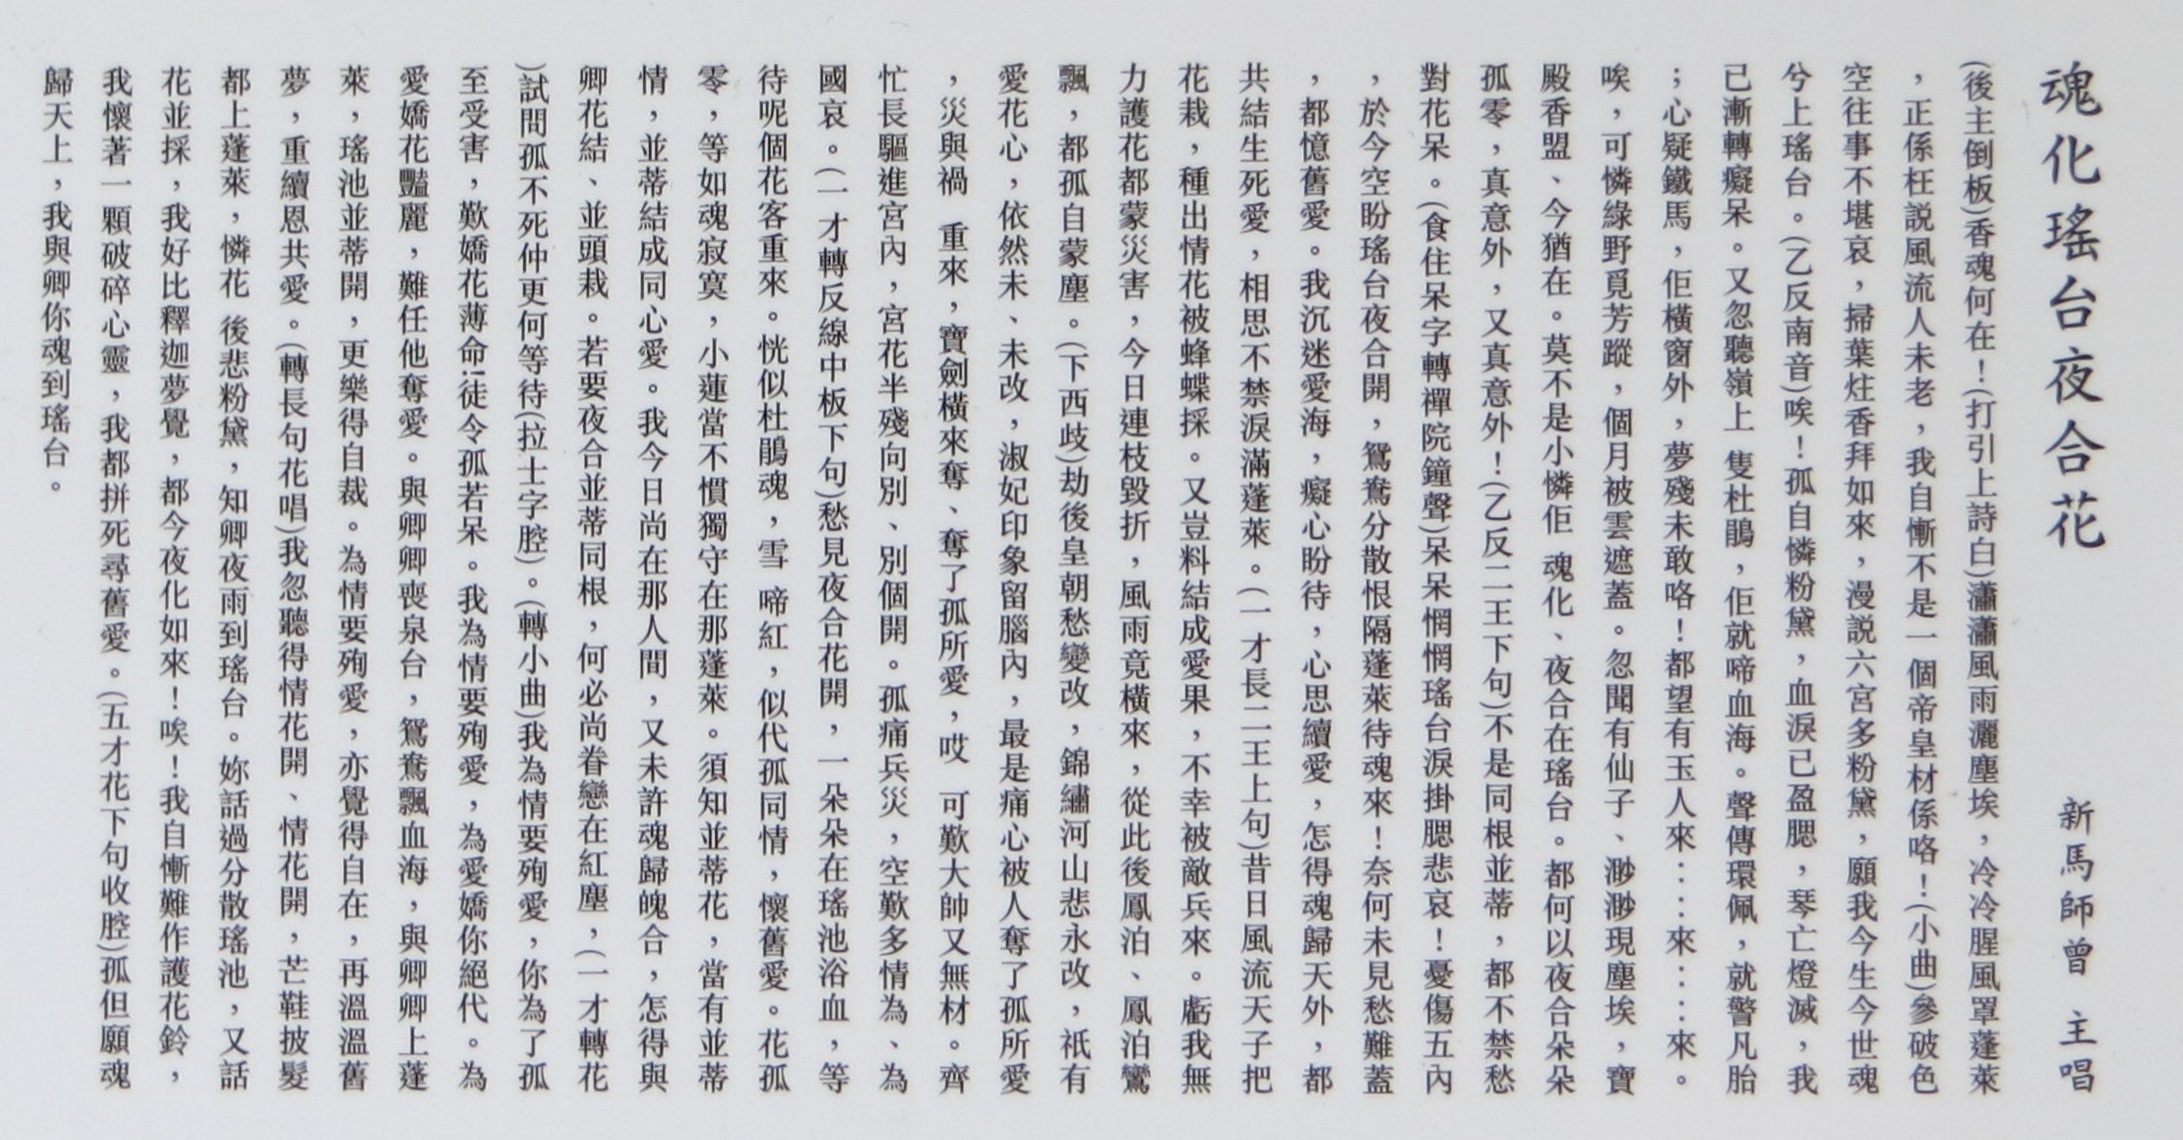 魂化瑤台夜合花
新馬師曾 主唱
(後主倒板)香魂何在！(打引上詩白)瀟瀟風雨灑塵埃，冷冷腥風罩蓬萊
，正係枉説風流人未老，我自慚不是一個帝皇材係咯！(小曲)參破色
空往事不堪哀，掃葉炷香拜如來，漫説六宮多粉黛，願我今生今世魂
兮上瑤台。(乙反南音)唉！孤自憐粉黛，血淚已盈腮，琴亡燈滅，我
已漸轉癡呆。又忽聽嶺上 隻杜鵑，佢就啼血海。聲傳環佩，就警凡胎
；心疑鐵馬，佢橫窗外，夢殘未敢咯！都望有玉人來：：來：：來。
唉，可憐綠野覓芳蹤，個月被雲遮蓋。忽聞有仙子、渺渺現塵埃，寶
殿香盟、今猶在。莫不是小憐佢 魂化、夜合在瑤台。都何以夜合朵朵
孤零，真意外，又真意外！(乙反二王下句)不是同根並蒂，都不禁愁
對花呆。(食住呆字轉禪院鐘聲)呆呆惘惘瑤台淚掛腮悲哀！憂傷五內
，於今空盼瑤台夜合開，鴛鴦分散恨隔蓬萊待魂來！奈何未見愁難蓋
，都憶舊愛。我沉迷愛海，癡心盼待，心思續愛，怎得魂歸天外，都
共結生死愛，相思不禁淚滿蓬萊。(一才長二王上句)昔日風流天子把
花栽，種出情花被蜂蝶採。又豈料結成愛果，不幸被敵兵來。虧我無
力護花都蒙災害，今日連枝毀折，風雨竟橫來，從此後鳳泊、鳳泊鸞
飄，都孤自蒙塵。(下西歧)劫後皇朝愁變改，錦繡河山悲永改，祇有
愛花心，依然未、未改，淑妃印象留腦內，最是痛心被人奪了孤所愛
，災與禍 重來，寶劍橫來奪、奪了孤所愛，哎 可歎大帥又無材。齊
忙長驅進宮內，宮花半殘向別、別個開。孤痛兵災，空歎多情為、為
國哀。(一才轉反線中板下句)愁見夜合花開，一朵朵在瑤池浴血，等
待呢個花客重來。恍似杜鵑魂，雪 啼紅，似代孤同情，懷舊愛。花孤
零，等如魂寂寞，小蓮當不慣獨守在那蓬萊。須知並蒂花，當有並蒂
情，並蒂結成同心愛。我今日尚在那人間，又未許魂歸魄合，怎得與
卿花結、並頭栽。若要夜合並蒂同根，何必尚眷戀在紅塵，(一才轉花
)試問孤不死仲更何等待(拉士字腔)。(轉小曲)我為情要殉愛，你為了孤
至受害，歎嬌花薄命!徒令孤若呆。我為情要殉愛，為愛嬌你絕代。為
愛嬌花豔麗，難任他奪愛。與卿卿喪泉台，鴛鴦飄血海，與卿卿上蓬
萊，瑤池並蒂開，更樂得自裁。為情要殉愛，亦覺得自在，再溫溫舊
夢，重續恩共愛。(轉長句花唱)我忽聽得情花開、情花開，芒鞋披髮
都上蓬萊，憐花 後悲粉黛，知卿夜雨到瑤台。妳話過分散瑤池，又話
花並採，我好比釋迦夢覺，都今夜化如來！唉！我自慚難作護花鈴，
我懷著一顆破碎心靈，我都拼死尋舊愛。(五才花下句收腔)孤但願魂
歸天上，我與卿你魂到瑤台。